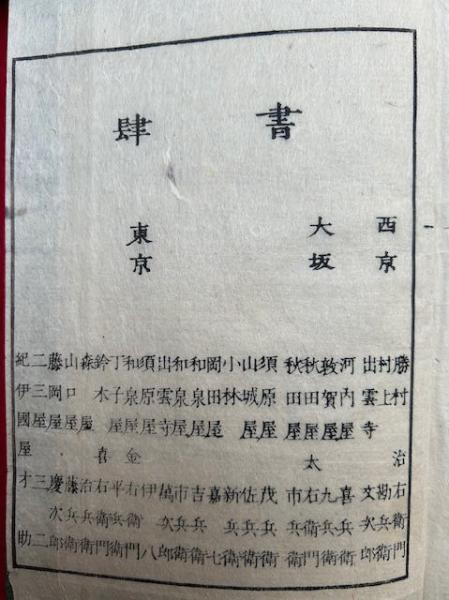 書肆
西京
勝村治右衛門
村上勘兵衛
出雲寺文次郎
大坂
河内屋喜兵衛
敦賀屋九兵衛
秋田屋太右衛門
秋田屋市兵衛
東京
須原屋茂兵衛
山城屋佐兵衛
小林新兵衛
岡田屋嘉七
和泉屋吉兵衛
和泉屋市兵衛
出雲寺萬次郎
須原屋伊八
和泉屋金右衛門
丁子屋平兵衛
鈴木喜右衛門
森屋治兵衛
山口屋藤兵衛
藤岡屋慶次郎
二三屋三二
紀伊國屋才助